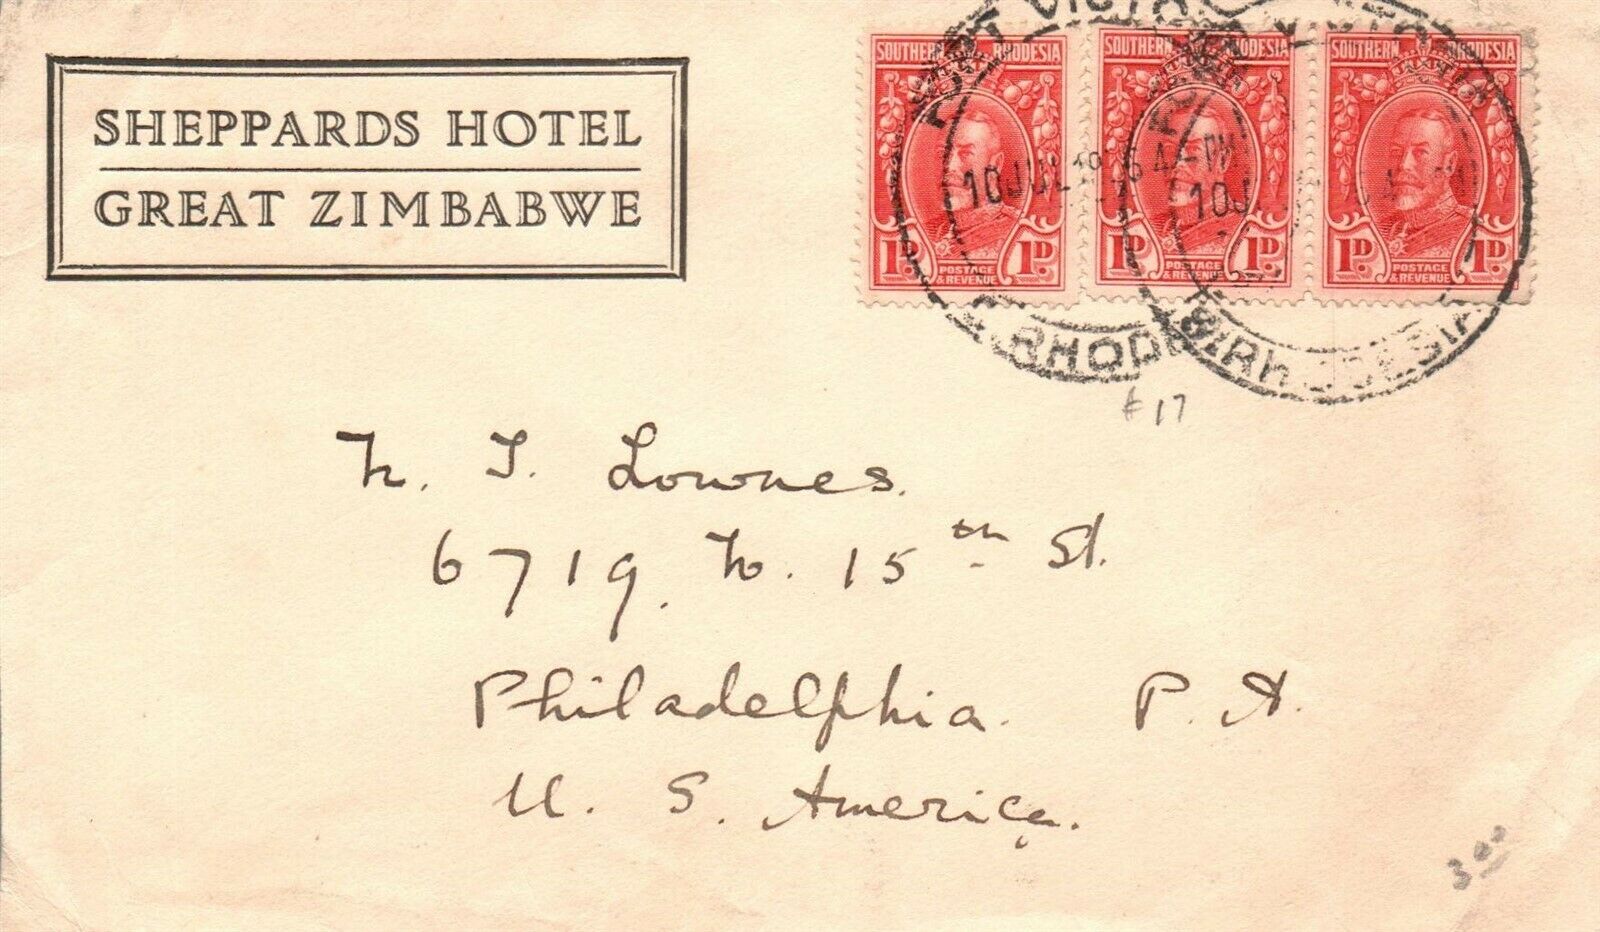 SHEPPARDS HOTEL
GREAT ZIMBABWE
SOUTHERN RHODESIA
1D. POSTAGE & REVENUE 1D.
SOUTHERN RHODESIA
1D. POSTAGE & REVENUE 1D.
SOUTHERN RHODESIA
1D. POSTAGE & REVENUE 1D.
10 JUL
4 - PM
10 J
RHOD
17
N. J. Lownes.
6719 N. 15th St.
Philadelphia. P. A.
U. S. America.